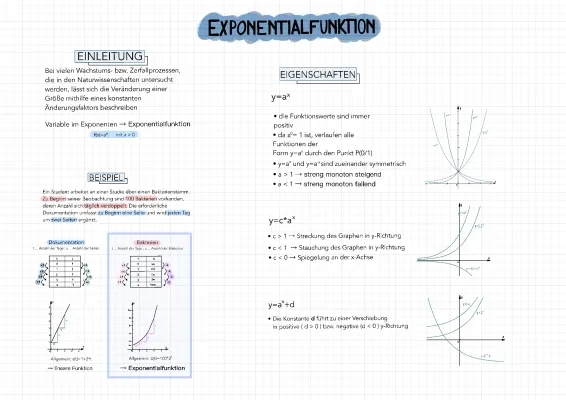 EXPONENTIALFUNKTION
EINLEITUNG
Bei vielen Wachstums- bzw. Zerfallprozessen,
die in den Naturwissenschaften untersucht
werden, lässt sich die Veränderung einer
Größe mithilfe eines konstanten
Änderungsfaktors beschreiben
Variable im Exponienten → Exponentialfunktion
f(x)=aˣ mit a > 0
BEISPIEL
Ein Student arbeitet an einer Studie über einen Bakterienstamm.
Zu Beginn seiner Beobachtung sind 100 Bakterien vorhanden,
deren Anzahl sich täglich verdoppelt. Die erforderliche
Dokumentation umfasst zu Beginn eine Seite und wird jeden Tag
um zwei Seiten ergänzt.
Dokumentation
Bakterien
Allgemein:
→ lineare Funktion
Allgemein:
→ Exponentialfunktion
EIGENSCHAFTEN
y=aˣ
• die Funktionswerte sind immer
positiv
• da a⁰= 1 ist, verlaufen alle
Funktionen der
Form y=aˣ durch den Punkt P(0/1)
• a > 1 → streng monoton steigend
• a < 1 → streng monoton fallend
y=c*aˣ
• c > 1 → Streckung des Graphen in y-Richtung
• c < 1 → Stauchung des Graphen in y-Richtung
• c < 0 → Spiegelung an der x-Achse
y=aˣ+d
• Die Konstante d führt zu einer Verschiebung
in positive ( d > 0 ) bzw. negative (d < 0 ) y-Richtung